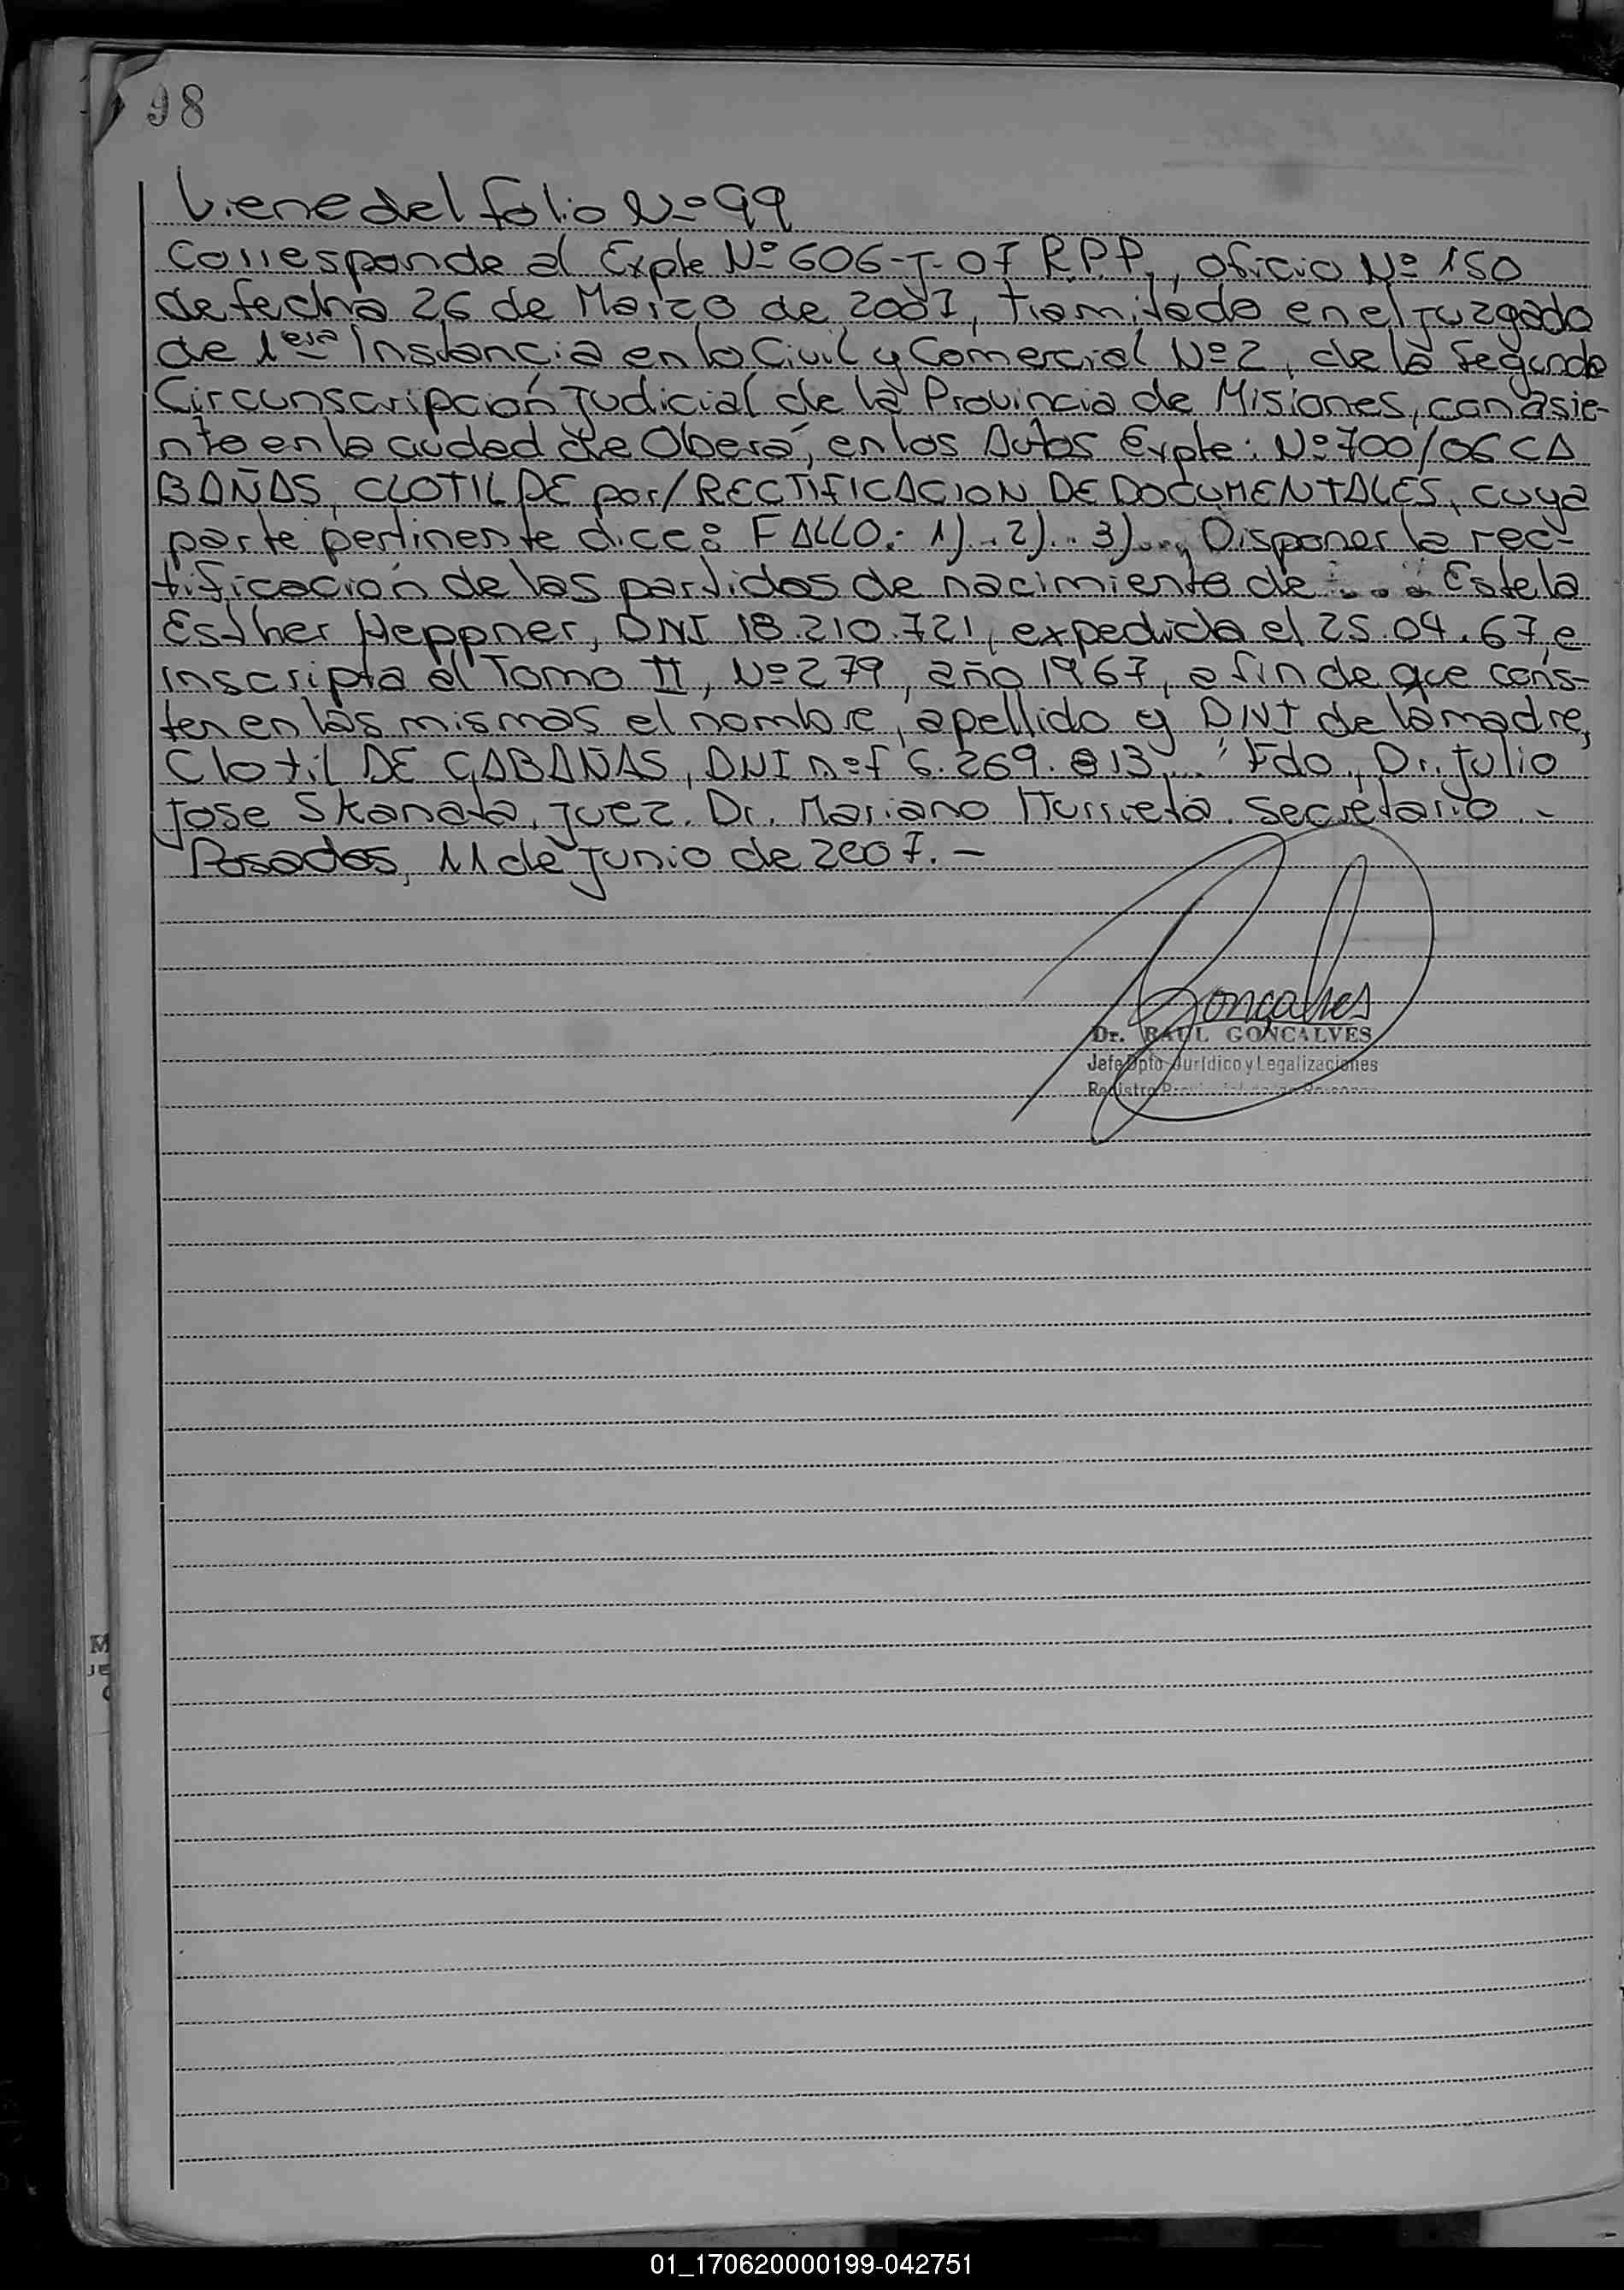 98
Viene del folio Nº 99
Corresponde al Expte Nº 606-J-07 R.P.P., oficio Nº 150
de fecha 26 de Marzo de 2007, tramitado en el juzgado
de 1era Instancia en lo Civil y Comercial Nº 2, de la Segunda
Circunscripción Judicial de la Provincia de Misiones, con asie-
nto en la ciudad de Oberá, en los Autos Expte: Nº 700/06 CA
BAÑAS, CLOTILDE por/RECTIFICACION DE DOCUMENTALES, cuya
parte pertinente dice: FALLO.- 1)...2)...3)..., Disponer la rec-
tificación de las partidas de nacimiento de .... Estela
Esther Heppner, DNI 18.210.721, expedida el 25.04.67, e
inscripta al Tomo II, Nº 279, año 1967, a fin de que cons-
ten en las mismas el nombre, apellido y DNI de la madre,
Clotil DE CABAÑAS, DNI nº f 6.269.813...." Fdo, Dr. Julio
Jose Skanata, juez. Dr. Mariano secretario.-
Posadas, 11 de junio de 2007.-
Goncalves
Dr. RAUL GONCALVES
Jefe Dpto Jurídico y Legalizaciones
Registro Provincial de las Personas
M
JE
01_170620000199-042751